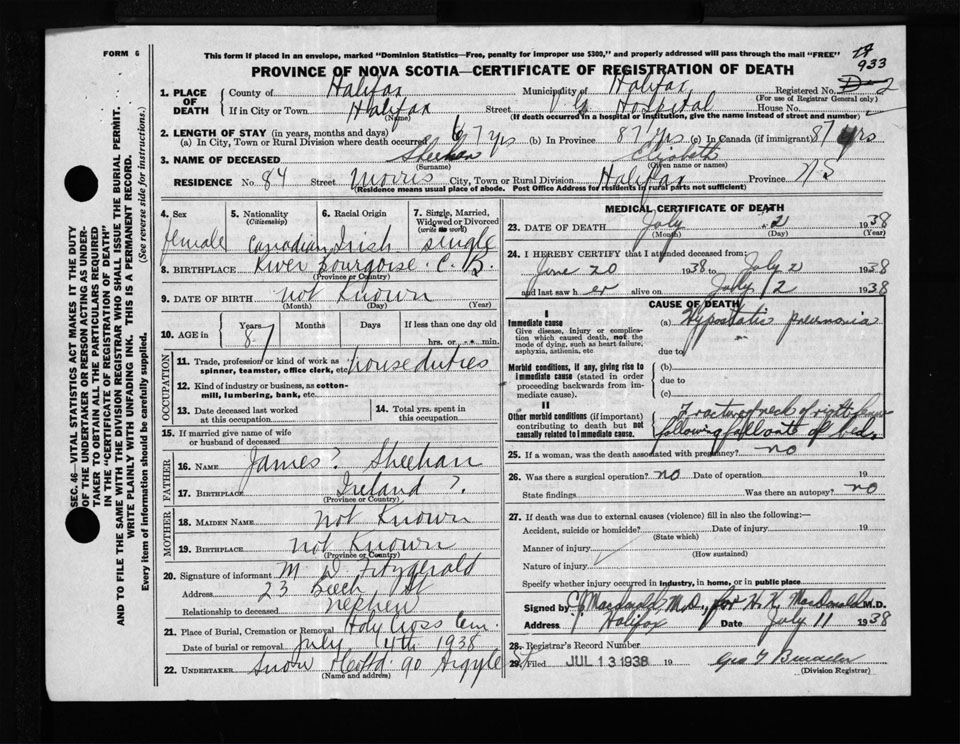 FORM 6
This form if placed in an envelope, marked "Dominion Statistics—Free, penalty for improper use $300," and properly addressed will pass through the mail "FREE"
933
PROVINCE OF NOVA SCOTIA—CERTIFICATE OF REGISTRATION OF DEATH
1. PLACE OF DEATH
County of Halifax Municipality of Halifax Registered No.
(For use of Registrar General only)
If in City or Town Halifax Street Hospital House No.
(Name) (If death occurred in a hospital or institution, give the name instead of street and number)
2. LENGTH OF STAY (in years, months and days)
(a) In City, Town or Rural Division where death occurred 67 yrs (b) In Province 87 yrs (c) In Canada (if immigrant) 87 yrs
3. NAME OF DECEASED Sheehan Elizabeth
(Surname) (Given name or names)
RESIDENCE No. 84 Street Morris City, Town or Rural Division Halifax Province N S
(Residence means usual place of abode. Post Office Address for residents in rural parts not sufficient)
4. Sex
female
5. Nationality
(Citizenship)
Canadian
6. Racial Origin
Irish
7. Single, Married, Widowed or Divorced
(write the word)
single
8. BIRTHPLACE River Bourgoise. C. B.
(Province or Country)
9. DATE OF BIRTH not Known
(Month) (Day) (Year)
10. AGE in
Years Months Days If less than one day old
87 hrs. or min.
OCCUPATION
11. Trade, profession or kind of work as spinner, teamster, office clerk, etc. house duties
12. Kind of industry or business, as cotton-mill, lumbering, bank, etc.
13. Date deceased last worked at this occupation
14. Total yrs. spent in this occupation
15. If married give name of wife or husband of deceased
FATHER
16. NAME James ? Sheehan
17. BIRTHPLACE Ireland ?.
(Province or Country)
MOTHER
18. MAIDEN NAME not Known
19. BIRTHPLACE not Known
(Province or Country)
20. Signature of informant M D. Fitzgerald
Address 23 Beech St
Relationship to deceased nephew
21. Place of Burial, Cremation or Removal Holy Cross Cem.
Date of burial or removal July 4th 1938
22. UNDERTAKER Snow 90 Argyle St
(Name and address)
MEDICAL CERTIFICATE OF DEATH
23. DATE OF DEATH July 2 1938
(Month) (Day) (Year)
24. I HEREBY CERTIFY that I attended deceased from:
June 20 1938 to July 2 1938
and last saw her alive on July 2 1938
CAUSE OF DEATH
I
Immediate cause (a) Hypostatic pneumonia
Give disease, injury or complication which caused death, not the mode of dying, such as heart failure, asphyxia, asthenia, etc
due to
Morbid conditions, if any, giving rise to immediate cause (stated in order proceeding backwards from immediate cause).
(b)
due to
(c)
II
Other morbid conditions (if important) contributing to death but not causally related to immediate cause.
Fractured neck of right femur
following fall out of bed.
25. If a woman, was the death associated with pregnancy? no
26. Was there a surgical operation? no Date of operation 19
State findings Was there an autopsy? no
27. If death was due to external causes (violence) fill in also the following:—
Accident, suicide or homicide? Date of injury 19
(State which)
Manner of injury
(How sustained)
Nature of injury
Specify whether injury occurred in industry, in home, or in public place
Signed by MacDonald M.D., for H. K. MacDonald M.D.
Address Halifax Date July 11 1938
28. Registrar's Record Number
29. Filed JUL 13 1938 19
(Division Registrar)
SEC. 46—VITAL STATISTICS ACT MAKES IT THE DUTY
OF THE UNDERTAKER OR PERSON ACTING AS UNDER-
TAKER TO OBTAIN ALL THE PARTICULARS REQUIRED
IN THE "CERTIFICATE OF REGISTRATION OF DEATH"
AND TO FILE THE SAME WITH THE DIVISION REGISTRAR WHO SHALL ISSUE THE BURIAL PERMIT.
WRITE PLAINLY WITH UNFADING INK. THIS IS A PERMANENT RECORD.
Every item of information should be carefully supplied. (See reverse side for instructions.)